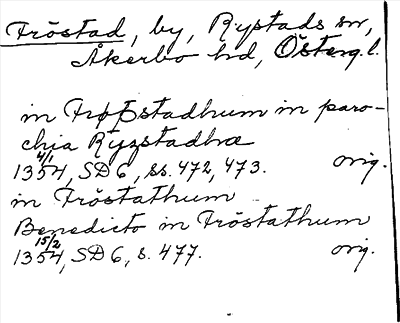 Fröstad, by, Rystads sn,
Åkerbo hd, Österg. l.
in Frøþstadhum in paro-
chia Ryzstadhæ
4/1 1354, SD 6, ss. 472, 473. orig.
in Fröstathum
Benedicto in Fröstathum
15/2 1354, SD 6, s. 477. orig.